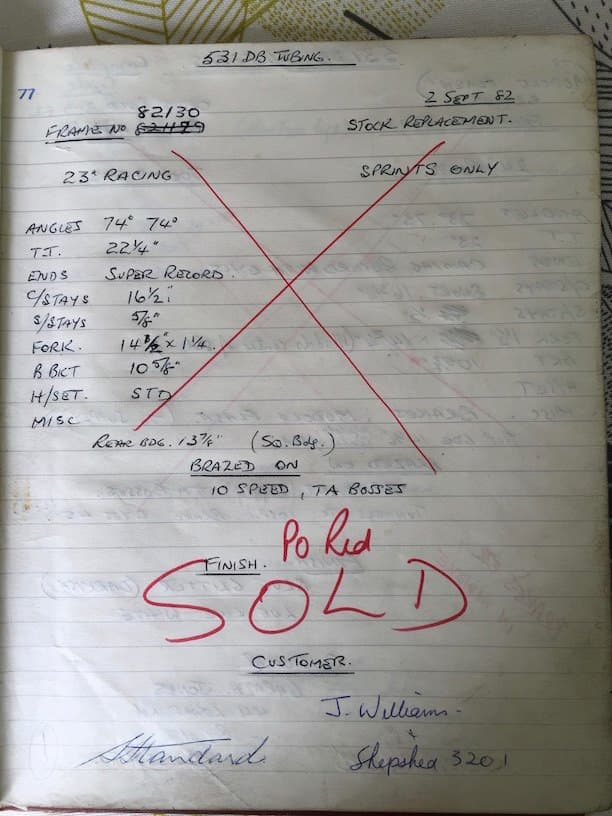 531 DB TUBING.
77
2 SEPT 82
82130
FRAME NO
STOCK REPLACEMENT.
23" RACING
SPRINTS ONLY
ANGLES 74° 74°
T.T. 22 1/4"
ENDS SUPER RECORD.
C/STAYS 16 1/2"
S/STAYS 5/8"
FORK. 14 1/2" x 1 1/4.
B BKT 10 5/8"
H/SET. STD
MISC
REAR BDG. 13 7/8" (SQ. Bdg.)
BRAZED ON
10 SPEED, TA BOSSES
PO Red
FINISH.
SOLD
CUSTOMER.
J. Williams
Standard
Shepshed 3201